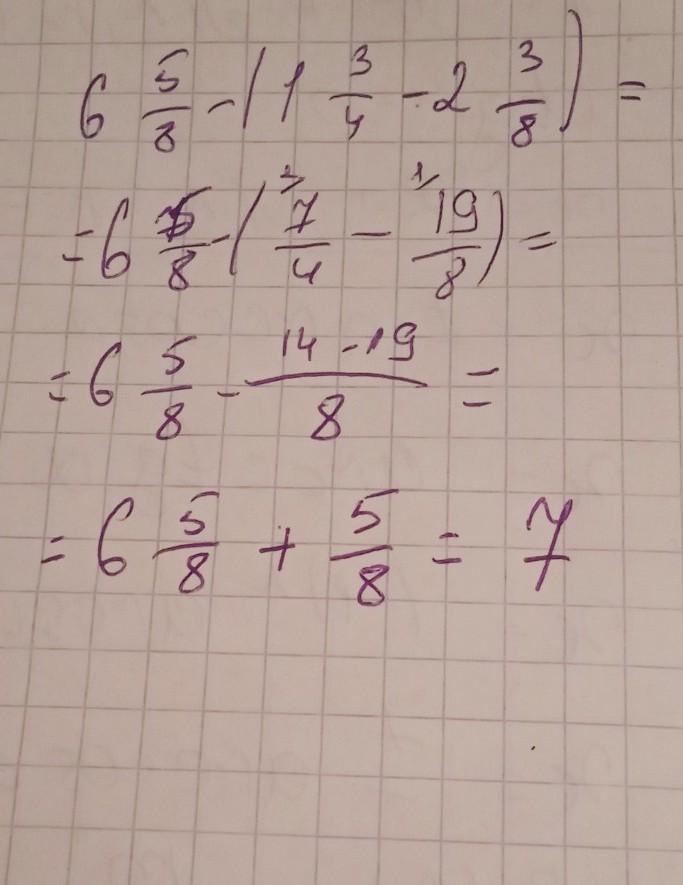 6 5/8 - (1 3/4 - 2 3/8) =
= 6 5/8 - (7/4 2/ - 19/8 1/) =
= 6 5/8 - (14 - 19)/8 =
= 6 5/8 + 5/8 = 7